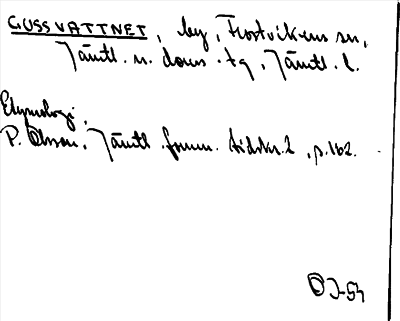 GUSSVATTNET, by, Frostvikens sn,
Jämtl. n. doms. tg, Jämtl. l.
Etymologi,
P. Olsson, Jämtl. fornm. tidskr. 2, p. 162.
OJ-54